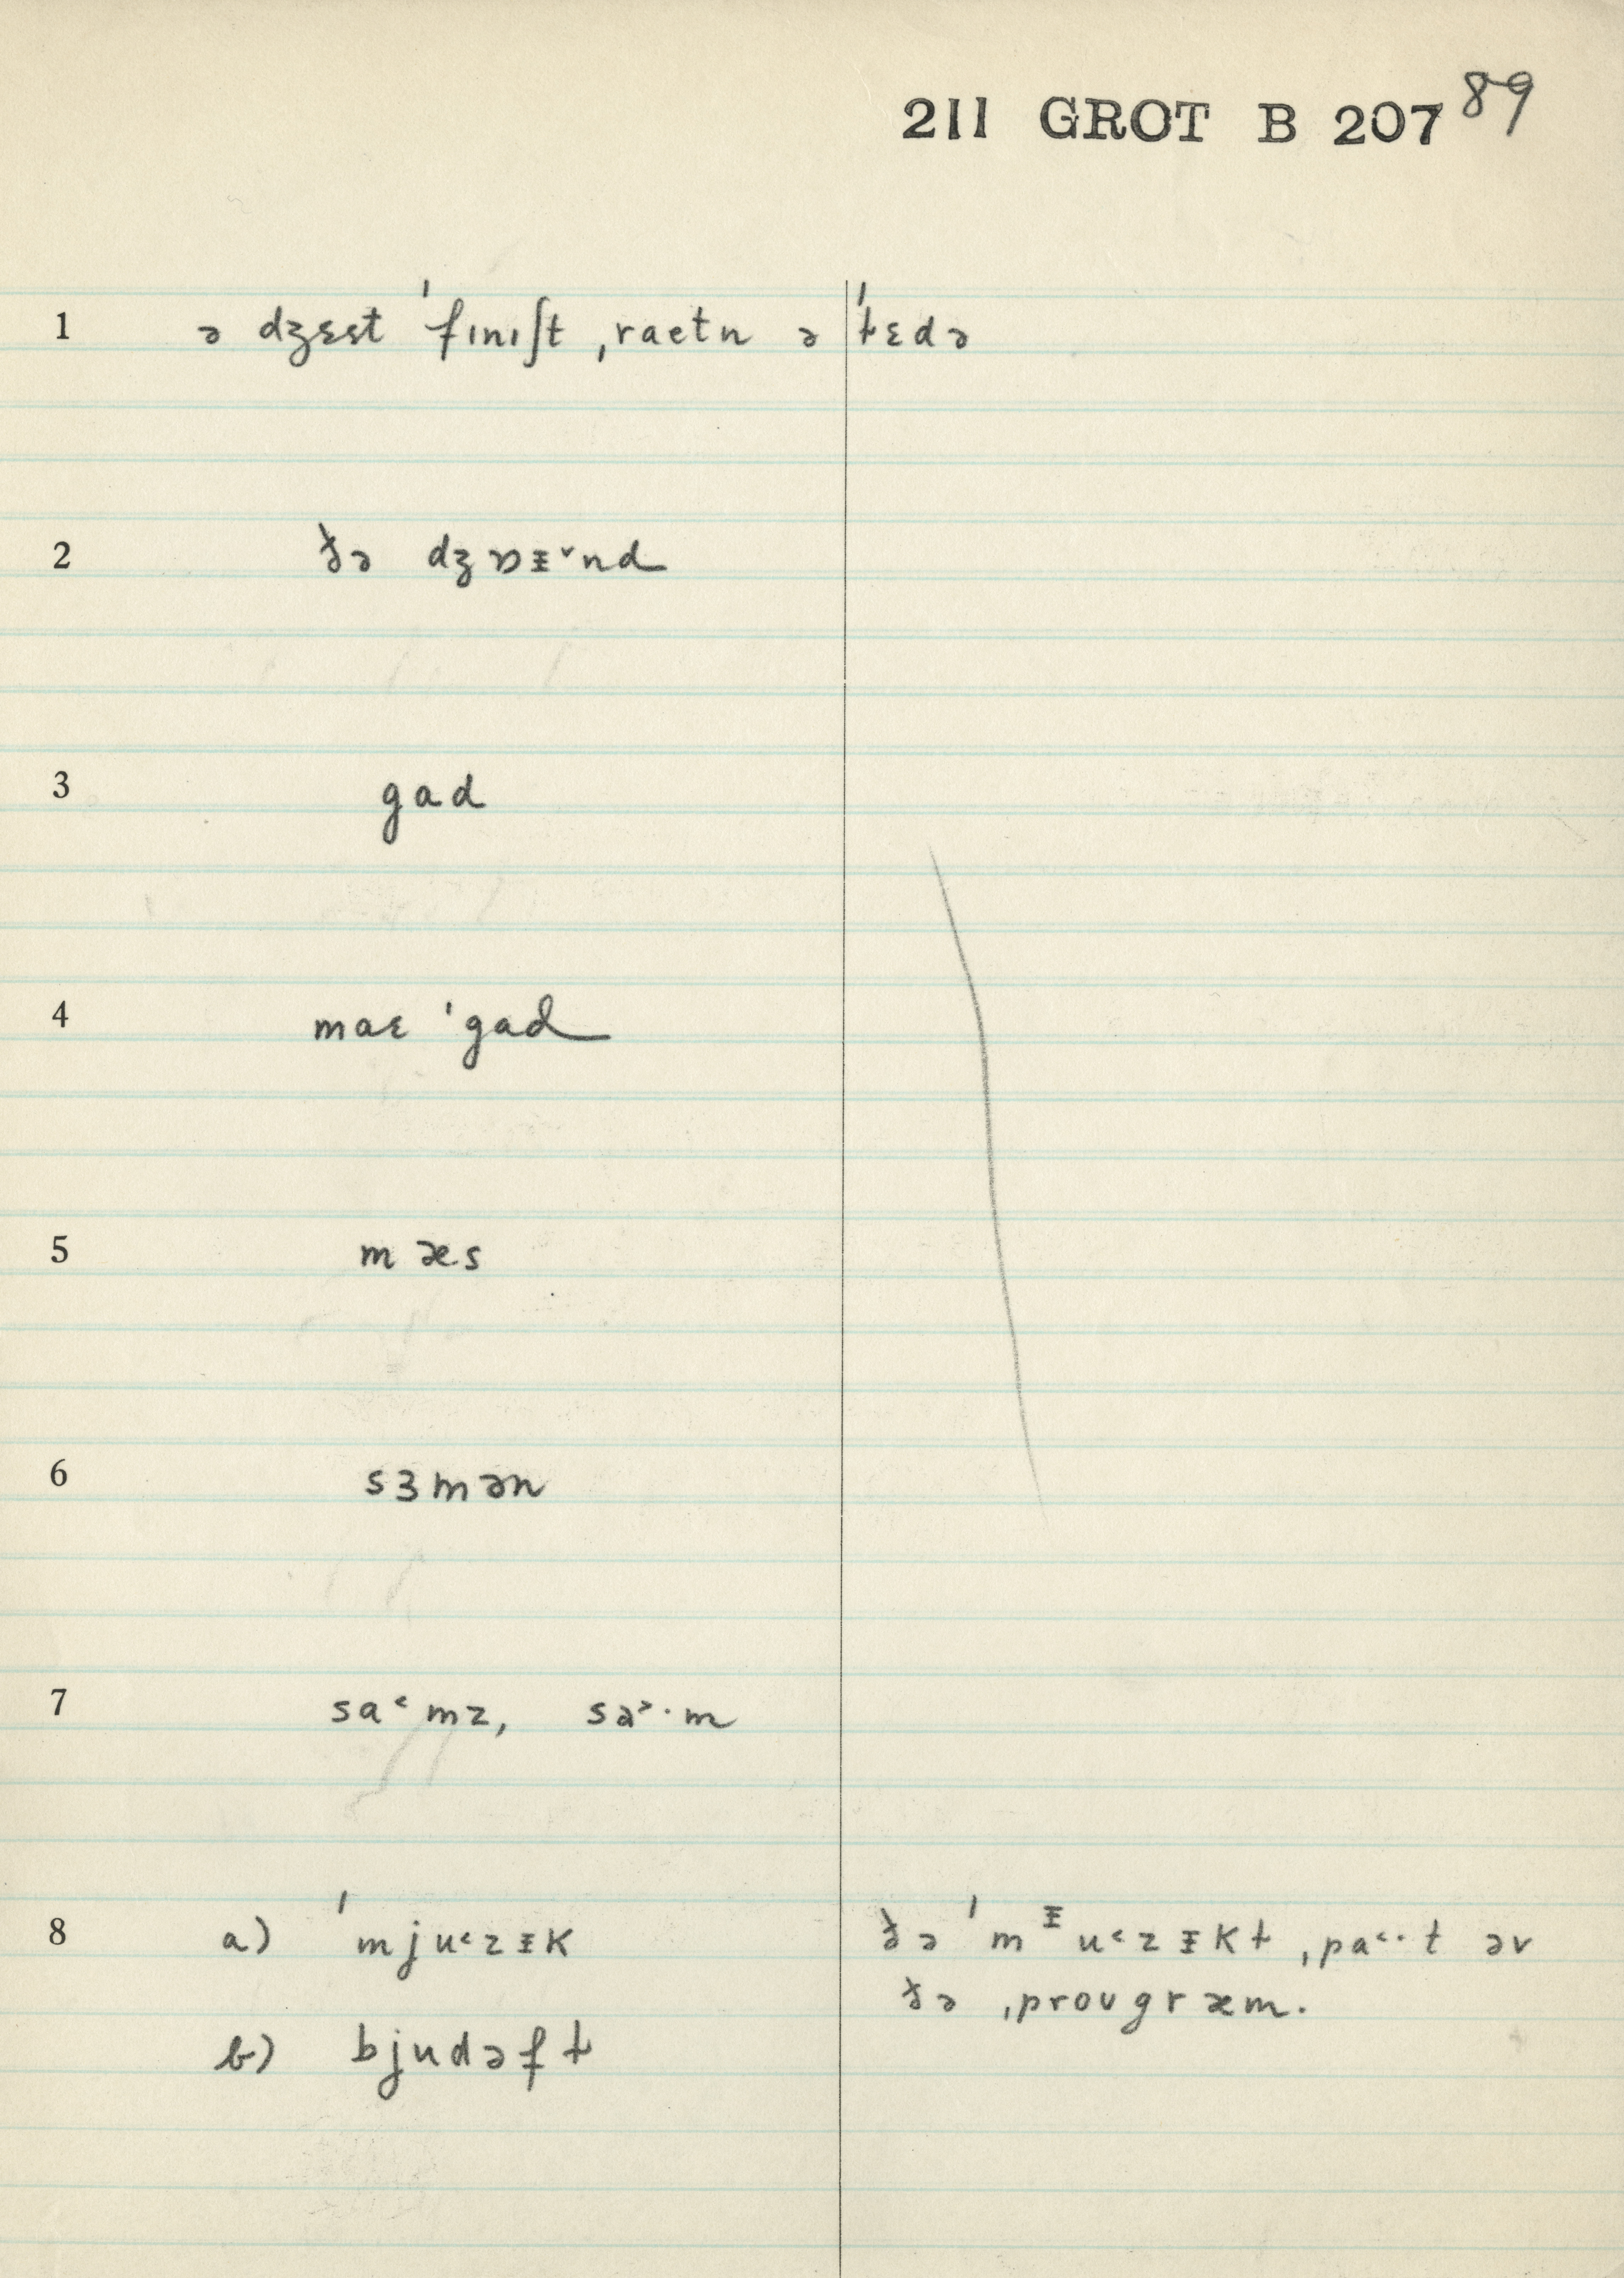 211 GROT B 207 89
1 ə dʒɛst ˈfɪnɪʃt ˌraetn ə ˈƚɛdə
2 ðə dʒɒᵻ˅nd
3 gad
4 maɛ ˈgad
5 mæs
6 sɜmən
7 sa˂mz, sa˃·m
8 a) ˈmju˂zᵻk ðə ˈmᵻu˂zᵻkƚ ˌpa˂·t əv
ðə ˌprougræm.
b) bjudəfƚ